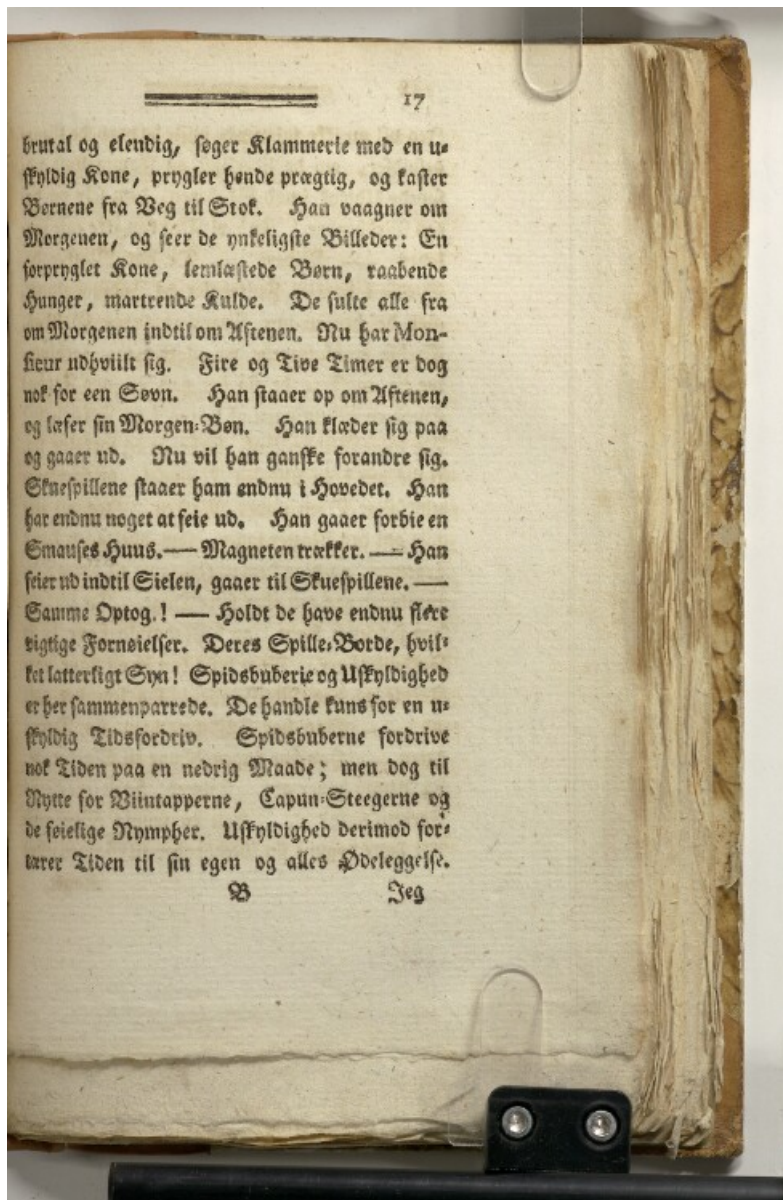 17
brutal og elendig, søger Klammerie med en u-
skyldig Kone, prygler hende prægtig, og kaster
Børnene fra Veg til Stok. Han vaagner om
Morgenen, og seer de ynkeligste Billeder: En
forpryglet Kone, lemlæstede Børn, raabende
Hunger, martrende Kulde. De sulte alle fra
om Morgenen indtil om Aftenen. Nu har Mon-
sieur udhviilt sig. Fire og Tive Timer er dog
nok for een Søvn. Han staaer op om Aftenen,
og læser sin Morgen-Bøn. Han klæder sig paa
og gaaer ud. Nu vil han ganske forandre sig.
Skuespillene staaer ham endnu i Hovedet. Han
har endnu noget at feie ud. Han gaaer forbie en
Smauses Huus. — Magneten trækker. — Han
feier ud indtil Sielen, gaaer til Skuespillene. —
Samme Optog.! — Holdt de have endnu flere
rigtige Fornøielser. Deres Spille-Borde, hvil-
ket latterligt Syn! Spidsbuberie og Uskyldighed
er her sammenparrede. De handle kuns for en u-
skyldig Tidsfordriv. Spidsbuberne fordrive
nok Tiden paa en nedrig Maade; men dog til
Nytte for Viintapperne, Capun-Steegerne og
de føielige Nympher. Uskyldighed derimod for-
tærer Tiden til sin egen og alles Ødeleggelse.
B Jeg